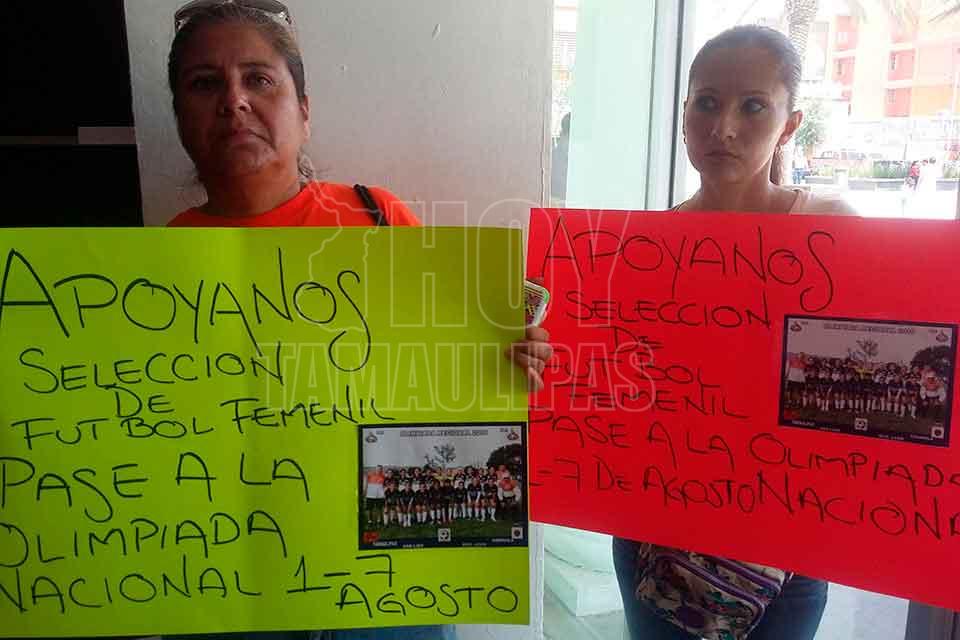 APOYANOS
SELECCION
DE
FUTBOL FEMENIL
PASE A LA
OLIMPIADA
NACIONAL 1-7
AGOSTO
APOYANOS
SELECCION
DE
FUTBOL
FEMENIL
PASE A LA OLIMPIADA
1-7 DE AGOSTO NACIONAL
HOY
TAMAULIPAS